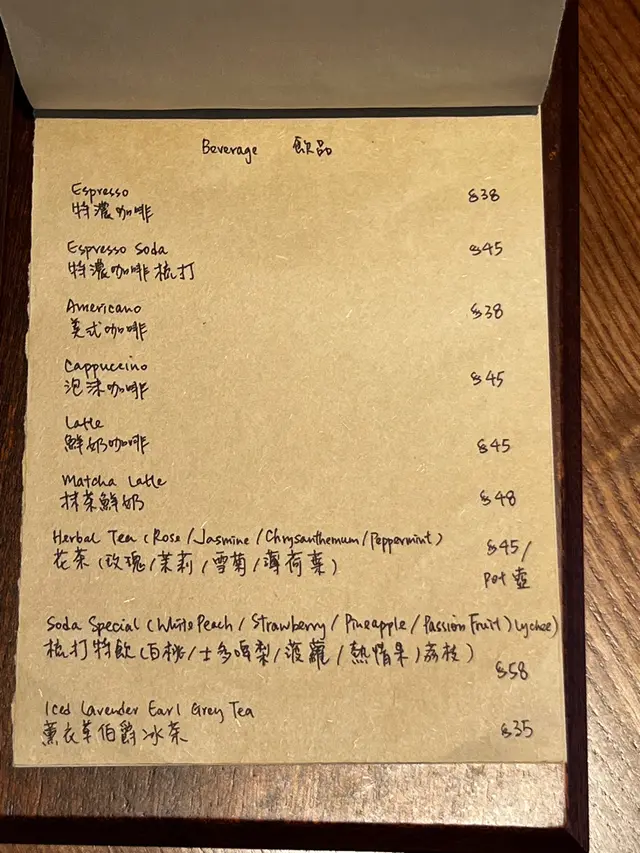 Beverage 飲品
Espresso $38
特濃咖啡
Espresso Soda $45
特濃咖啡梳打
Americano $38
美式咖啡
Cappuccino $45
泡沫咖啡
Latte
鮮奶咖啡 $45
Matcha Latte
抹茶鮮奶 $48
Herbal Tea (Rose / Jasmine / Chrysanthemum / Peppermint) $45/
花茶 (玫瑰/茉莉/雪菊/薄荷葉) Pot 壺
Soda Special (White Peach / Strawberry / Pineapple / Passion Fruit) Lychee)
梳打特飲 (白桃/士多啤梨/菠蘿/熱情果) 荔枝)
$58
Iced Lavender Earl Grey Tea
薰衣草伯爵冰茶 $35